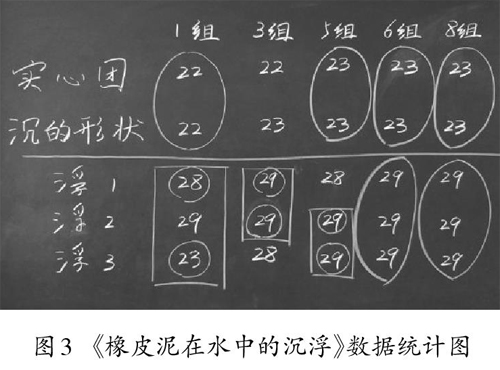 1组 3组 5组 6组 8组
实心团 22 22 23 23 23
沉的形状 22 23 23 23 23
浮1 28 29 28 29 29
浮2 29 29 29 29 29
浮3 23 28 29 29 29
图3 《橡皮泥在水中的沉浮》数据统计图